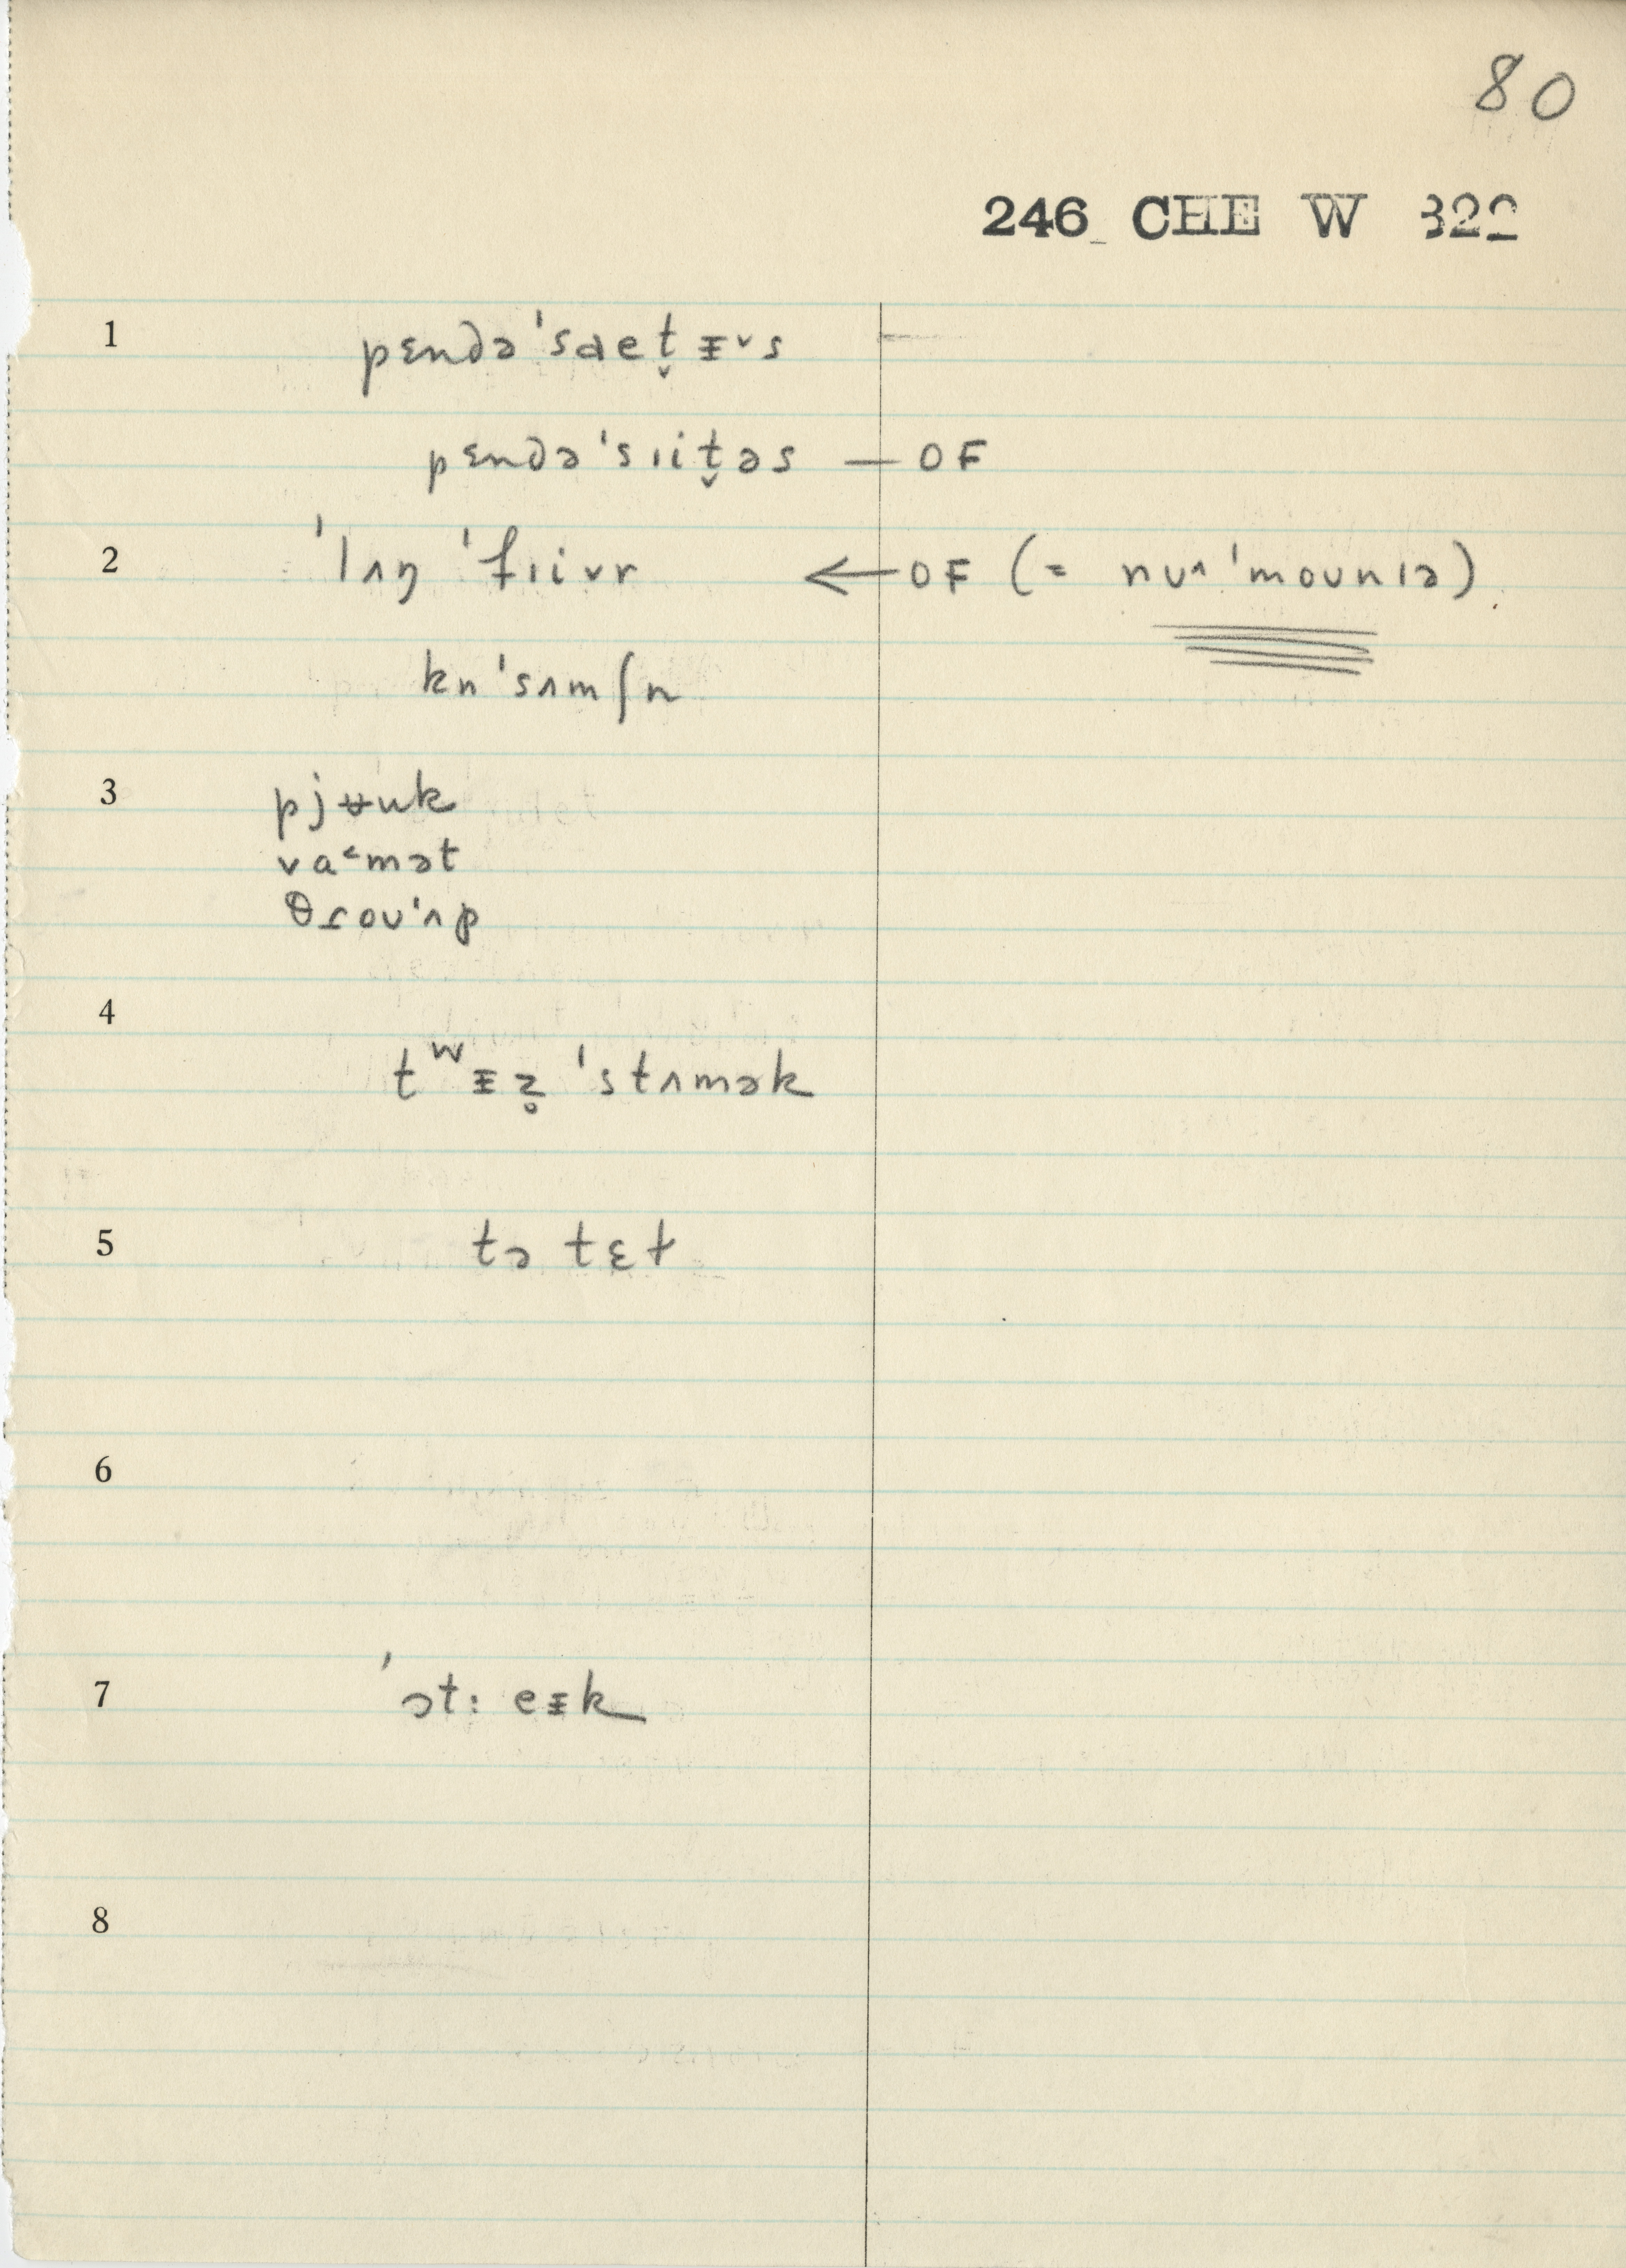 80
246 CHE W 322
1 pɛndə'saet̬ᵻ˅s –
pɛndə'sɪit̬əs — OF
2 'lʌŋ 'fɪivr ← OF (= nuʌ'mounɪə)
kn'sʌmʃn
3 pjʉuk
va˂mət
θɾou'ʌp
4
tʷᵻz̥ 'stʌmək
5 tə tɛt
6
7 'ɔt: eᵻk
8